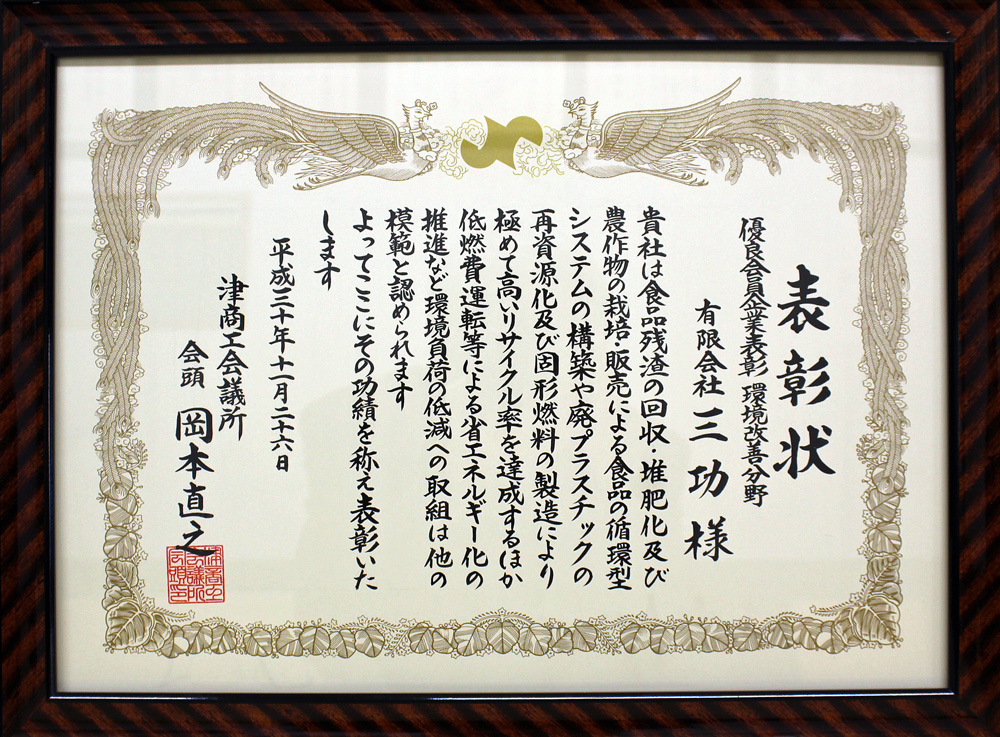 表彰状
優良会員企業表彰 環境改善分野
有限会社 三功 様
貴社は食品残渣の回収・堆肥化及び
農作物の栽培・販売による食品の循環型
システムの構築や廃プラスチックの
再資源化及び固形燃料の製造により
極めて高いリサイクル率を達成するほか
低燃費運転等による省エネルギー化の
推進など環境負荷の低減への取組は他の
模範と認められます
よってここにその功績を称え表彰いた
します
平成三十年十一月二十六日
津商工会議所
会頭 岡本直之
津商工会議所会頭之印